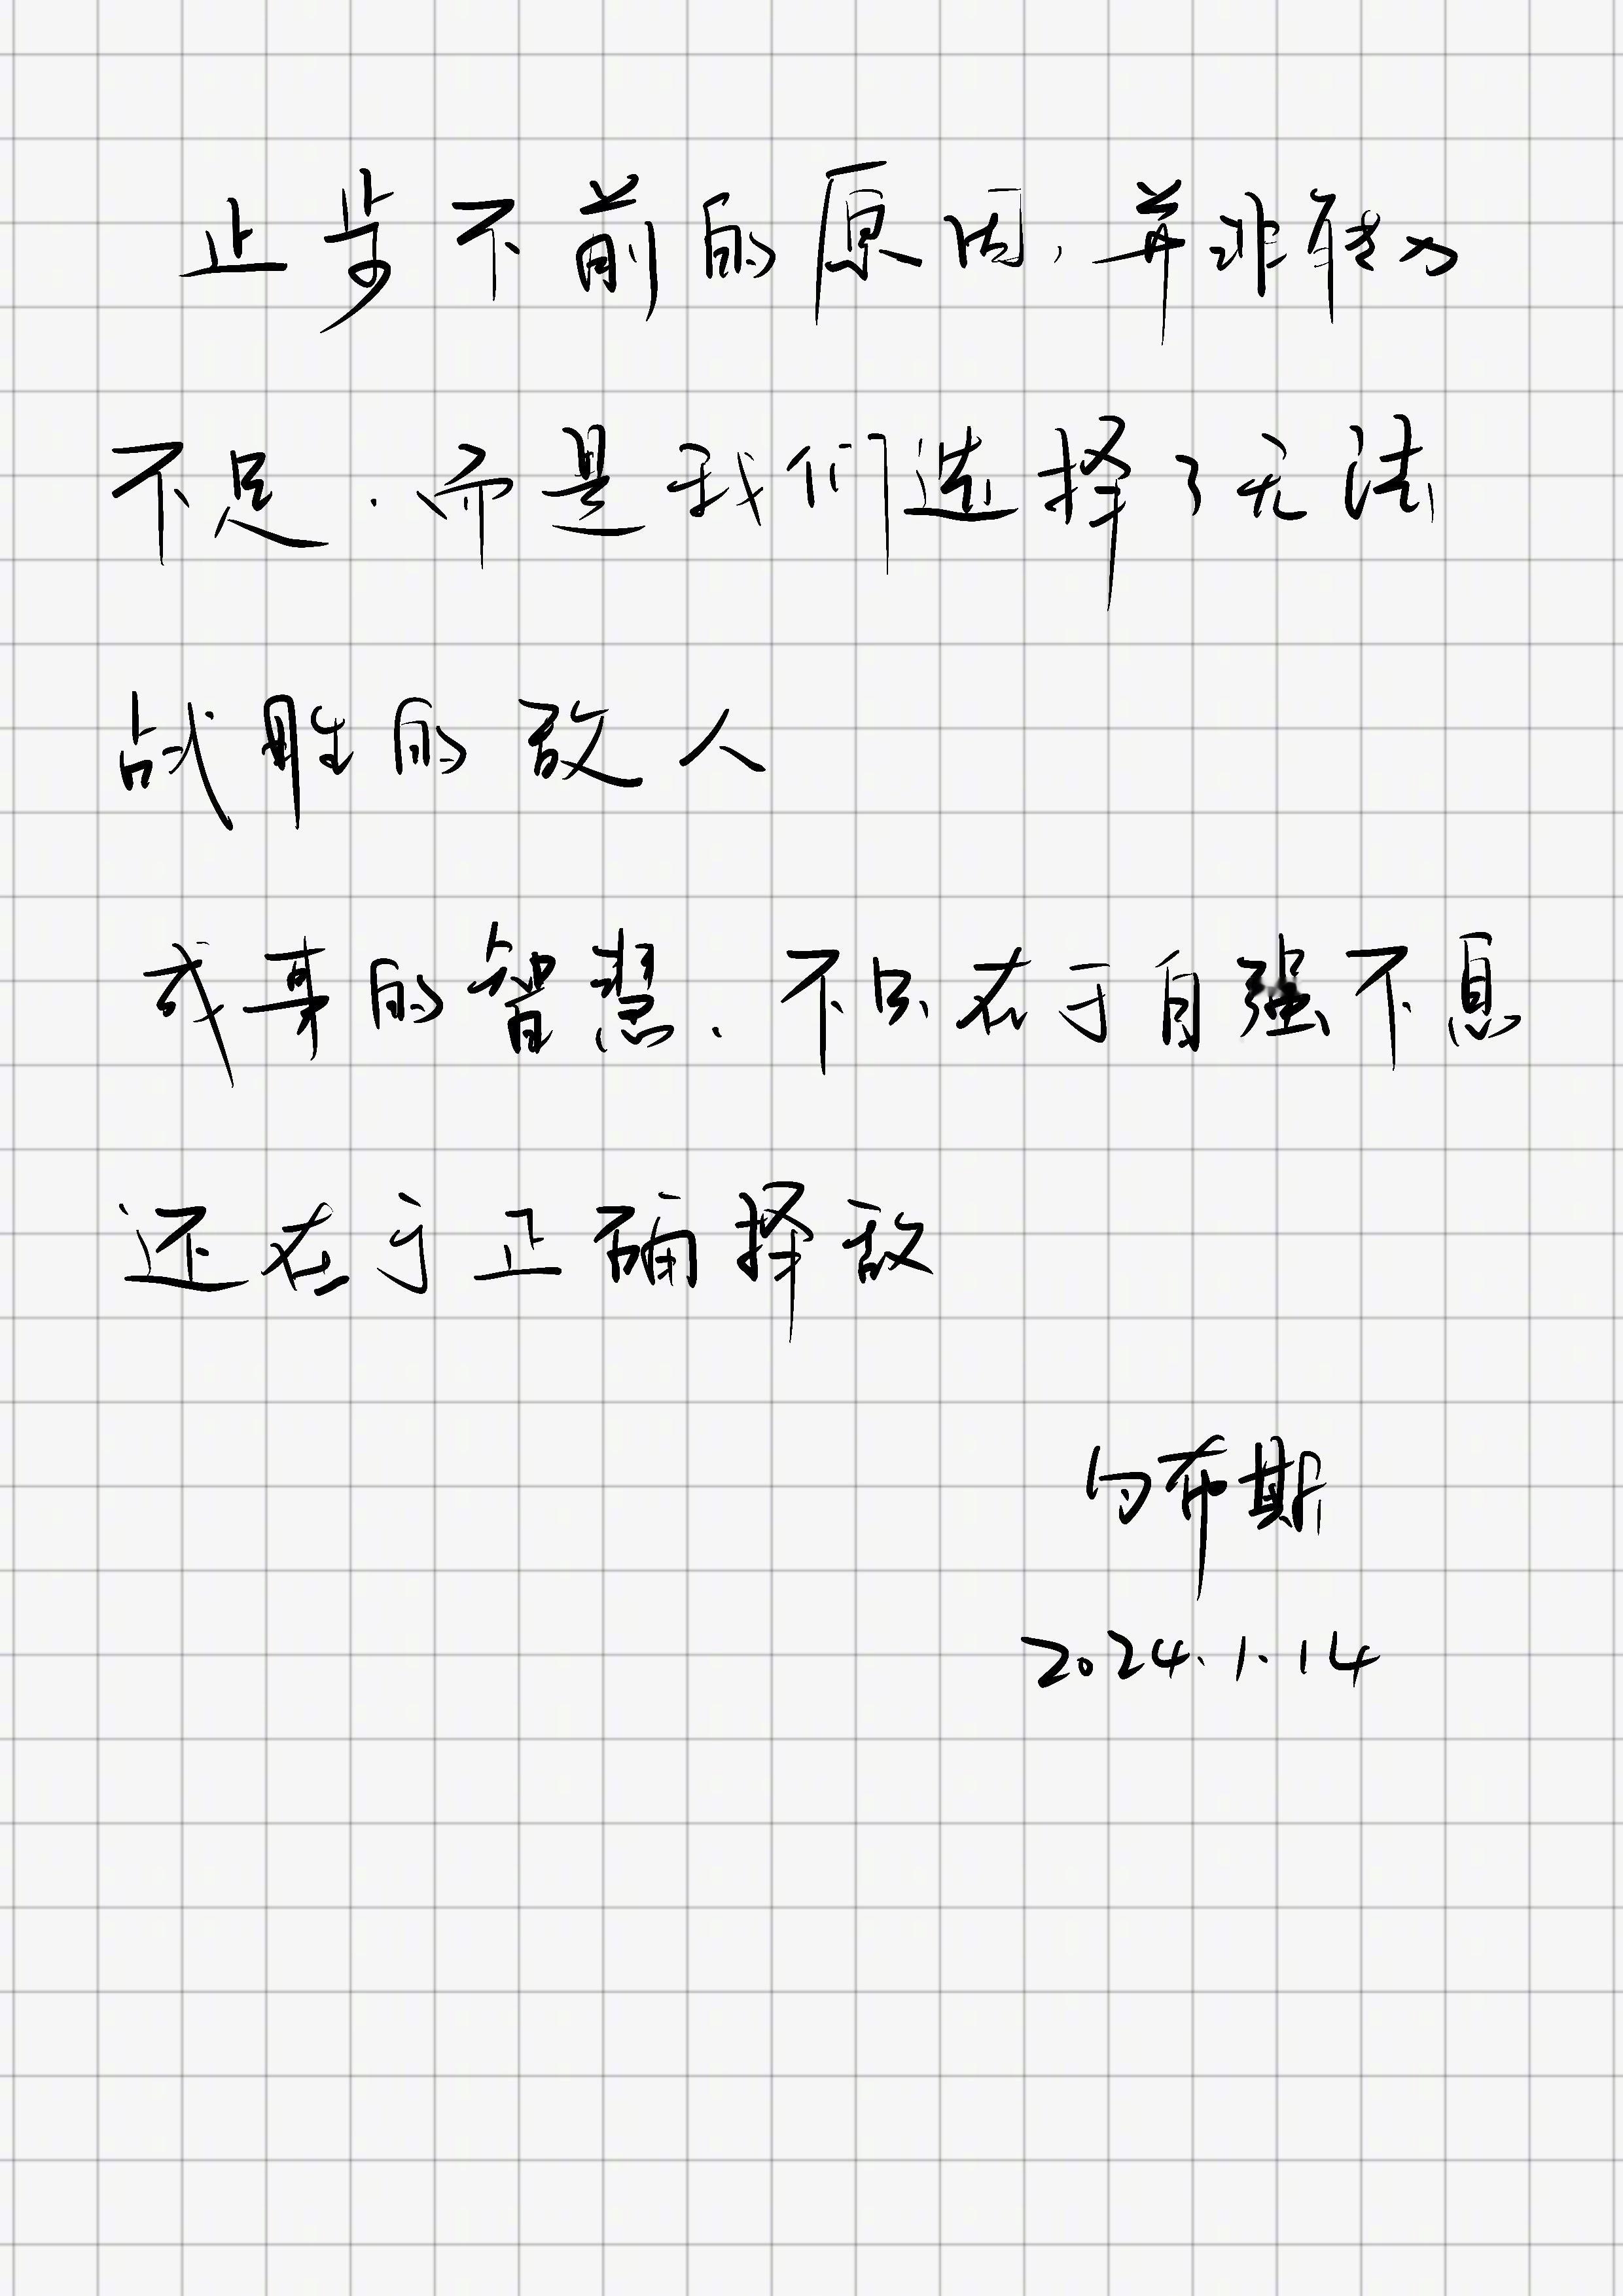 止步不前的原因，并非耗力
不足，而是我们选择了无法
战胜的敌人
成事的智慧，不只在于自强不息
还在于正确择敌
布斯
2024.1.14